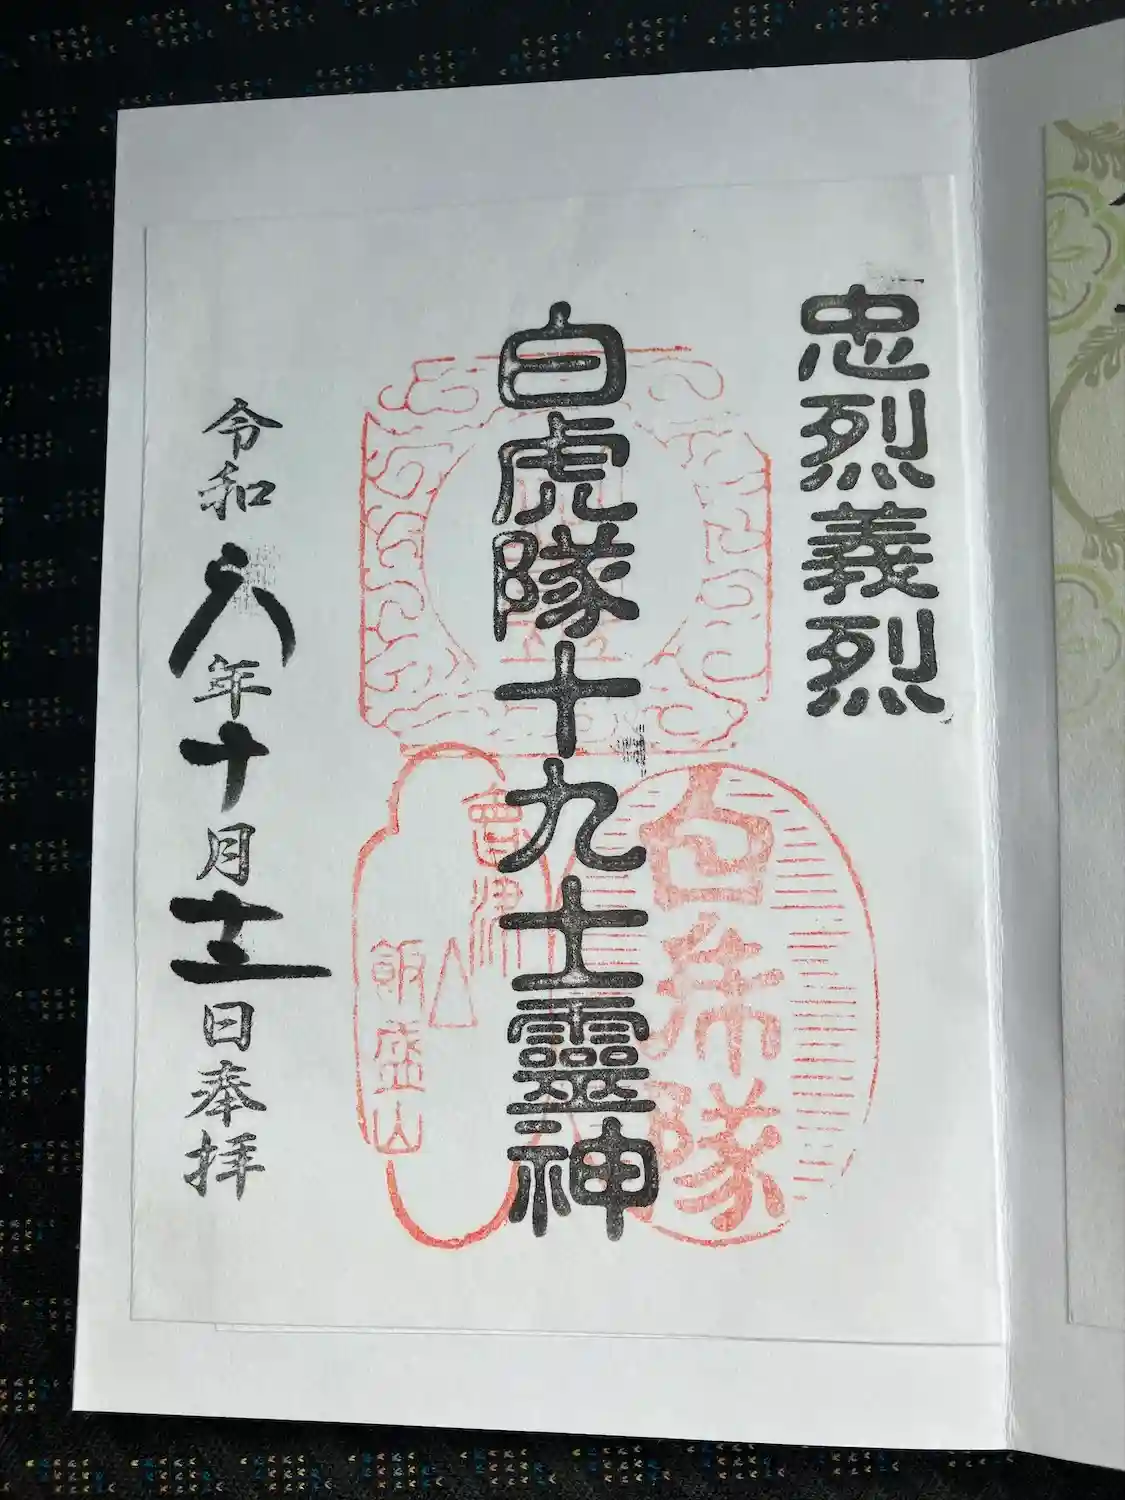 忠烈義烈
白虎隊十九士靈神
白虎隊
會津
飯盛山
令和六年十月十三日奉拝